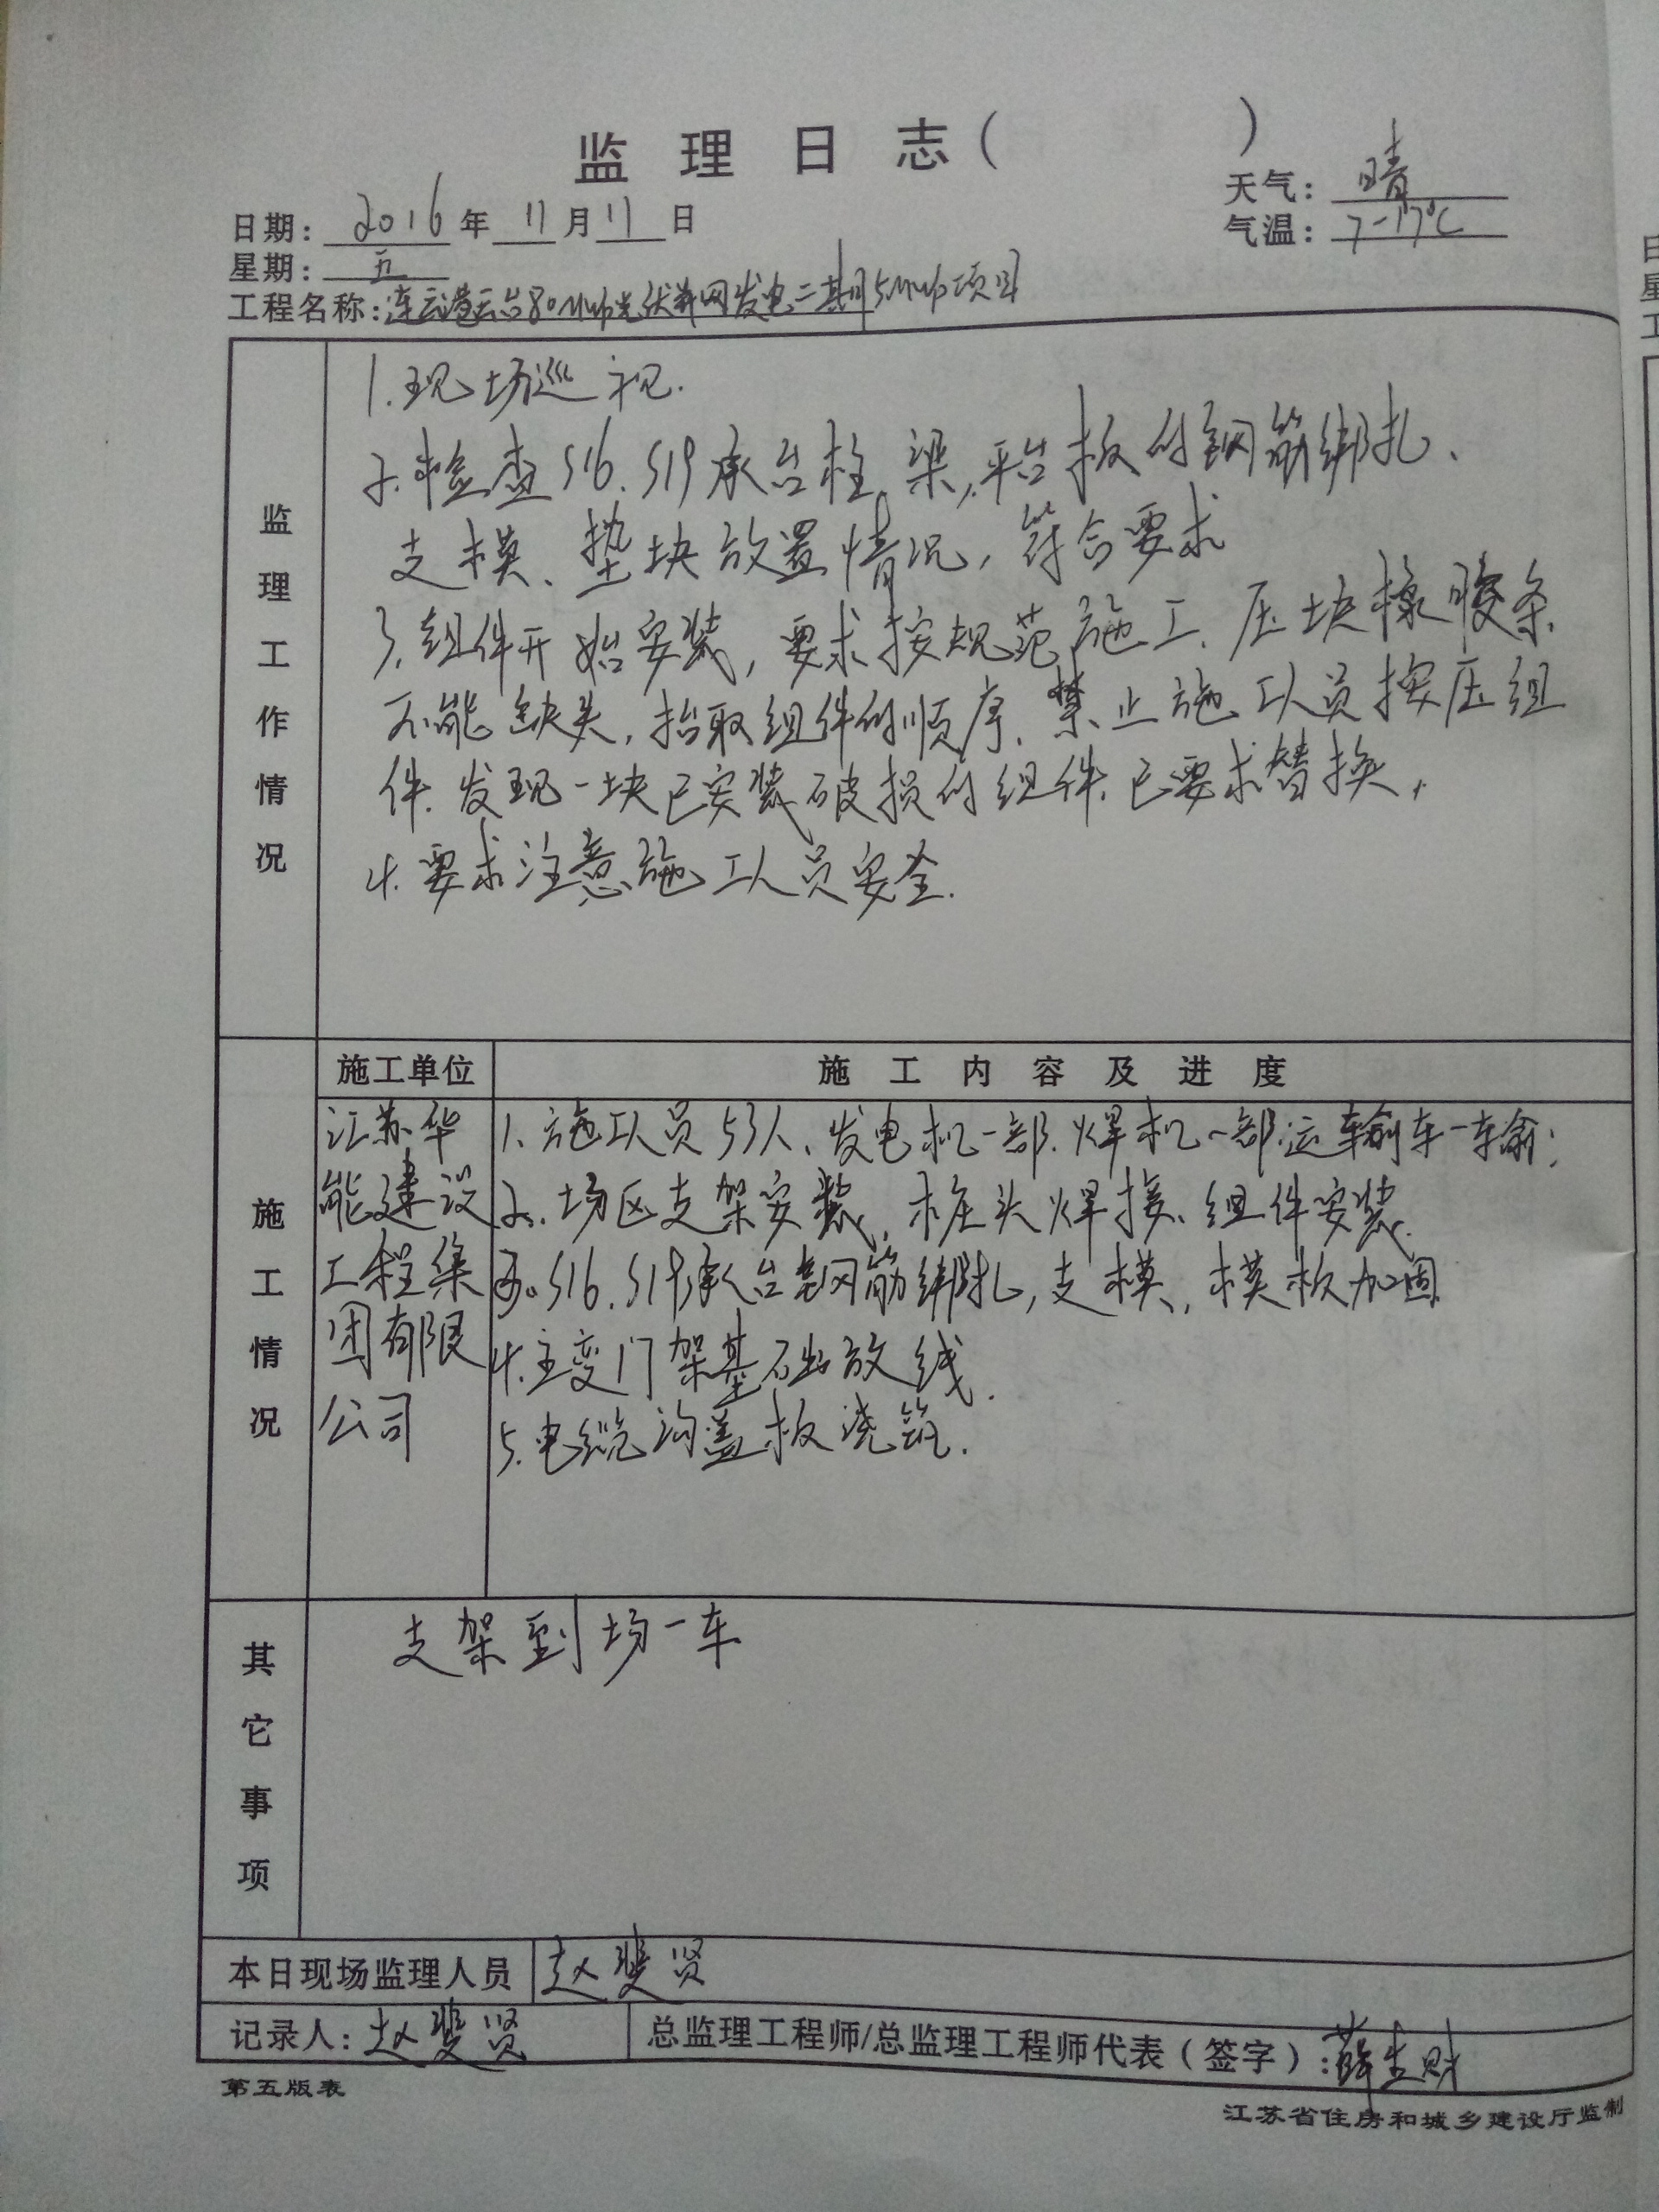 监理日志（ ）
天气：晴
日期：2016年11月11日
气温：7-17℃
星期：五
工程名称：连云港云台80MWp光伏并网发电二期5MWp项目
监理工作情况
1.现场巡视.
2.检查S16.S19承台柱,梁,平台板的钢筋绑扎、
支模、垫块放置情况，符合要求
3.组件开始安装，要求按规范施工.压块橡胶条
不能缺失，抬取组件的顺序.禁止施工人员按压组
件.发现一块已安装破损的组件.已要求替换,
4.要求注意施工人员安全.
施工情况
施工单位
施工内容及进度
江苏华
能建设
工程集
团有限
公司
1、施工人员53人、发电机一部.焊机一部.运输车一车俞;
2、场区支架安装，桩头焊接、组件安装.
3.S16.S19承台钢筋绑扎,支模,模板加固
4.主变门架基础放线.
5.电缆沟盖板浇筑.
其它事项
支架到场一车
本日现场监理人员 赵斐贤
记录人：赵斐贤
总监理工程师/总监理工程师代表（签字）：薛生财
第五版表
江苏省住房和城乡建设厅监制